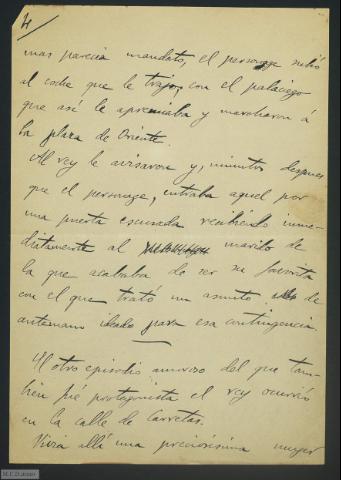 4/
mas parecia mandato, el personage subió
al coche que le trajo, con el palaciego
que asi le apremiaba y marcharon á
la plaza de Oriente.
Al rey le avisaron y, minutos despues
que el personage, entraba aquel por
una puerta escusada recibiendo inme-
diatamente al marido de
la que acababa de ser su favorita
con el que trató un asunto de
antemano ideado para esa contingencia.
El otro episodio amoroso del que tam-
bien fué protagonista el rey ocurrió
en la calle de Carretas.
Vivia allí una preciosisima muger